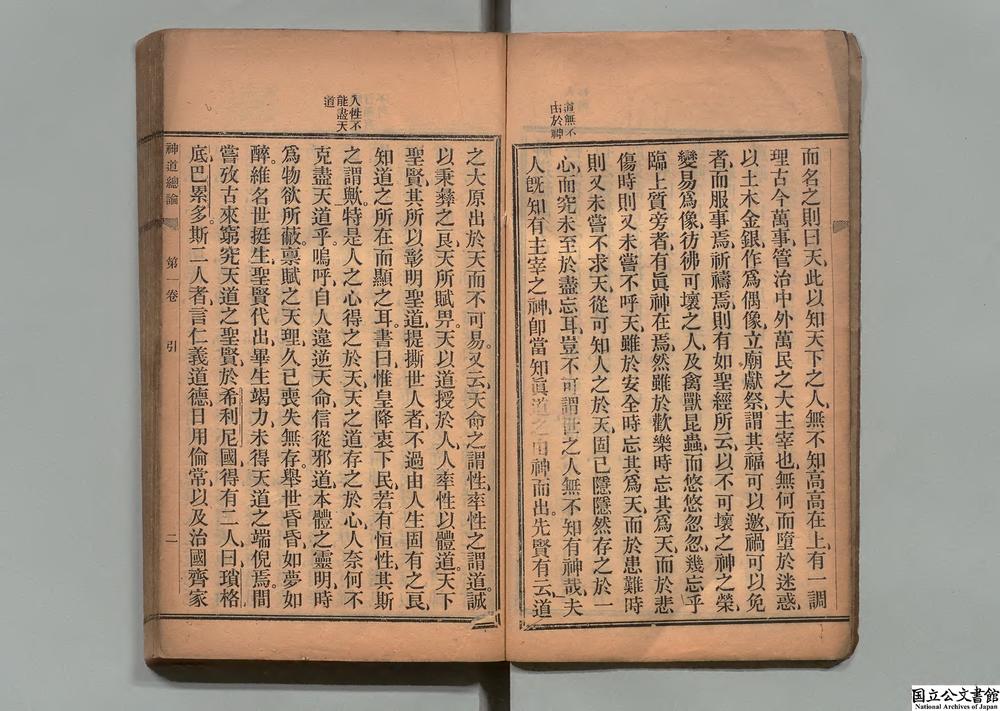 道無不
由於神
而名之則曰天、此以知天下之人、無不知高高在上、有一調
理古今萬事、管治中外萬民之大主宰也、無何而墮於迷惑、
以土木金銀、作爲偶像、立廟獻祭、謂其福可以邀、禍可以免
者、而服事焉、祈禱焉、則有如聖經所云、以不可壞之神之榮、
變易爲像、彷彿可壞之人、及禽獸昆蟲、而悠悠忽忽、幾忘乎
臨上質旁者、有眞神在焉、然雖於歡樂時、忘其爲天、而於悲
傷時、則又未嘗不呼天、雖於安全時、忘其爲天、而於患難時
則又未嘗不求天、從可知人之於天、固已隱隱然存之於一
心、而究未至於盡忘耳、豈不可謂世之人、無不知有神哉、夫
人旣知有主宰之神、卽當知眞道之由神而出。先賢有云、道
人性不
能盡天
道
之大原出於天而不可易。又云、天命之謂性、率性之謂道。誠
以秉彝之良、天所賦畀。天以道授於人、人率性以體道。天下
聖賢、其所以彰明聖道、提撕世人者、不過由人生固有之良、
知道之所在而顯之耳。書曰、惟皇降衷下民、若有恒性、其斯
之謂歟。特是人之心得之於天、天之道存之於心、人奈何不
克盡天道乎。嗚呼、自人違逆天命、信從邪道、本體之靈明、時
爲物欲所蔽。禀賦之天理、久已喪失無存。舉世昏昏、如夢如
醉。維名世挺生、聖賢代出、畢生竭力、未得天道之端倪焉。間
嘗攷古來窮究天道之聖賢、於希利尼國得有二人、曰瑣格
底、巴累多。斯二人者、言仁義道德、日用倫常、以及治國齊家
神道總論
第一卷
引
二
国立公文書館
National Archives of Japan